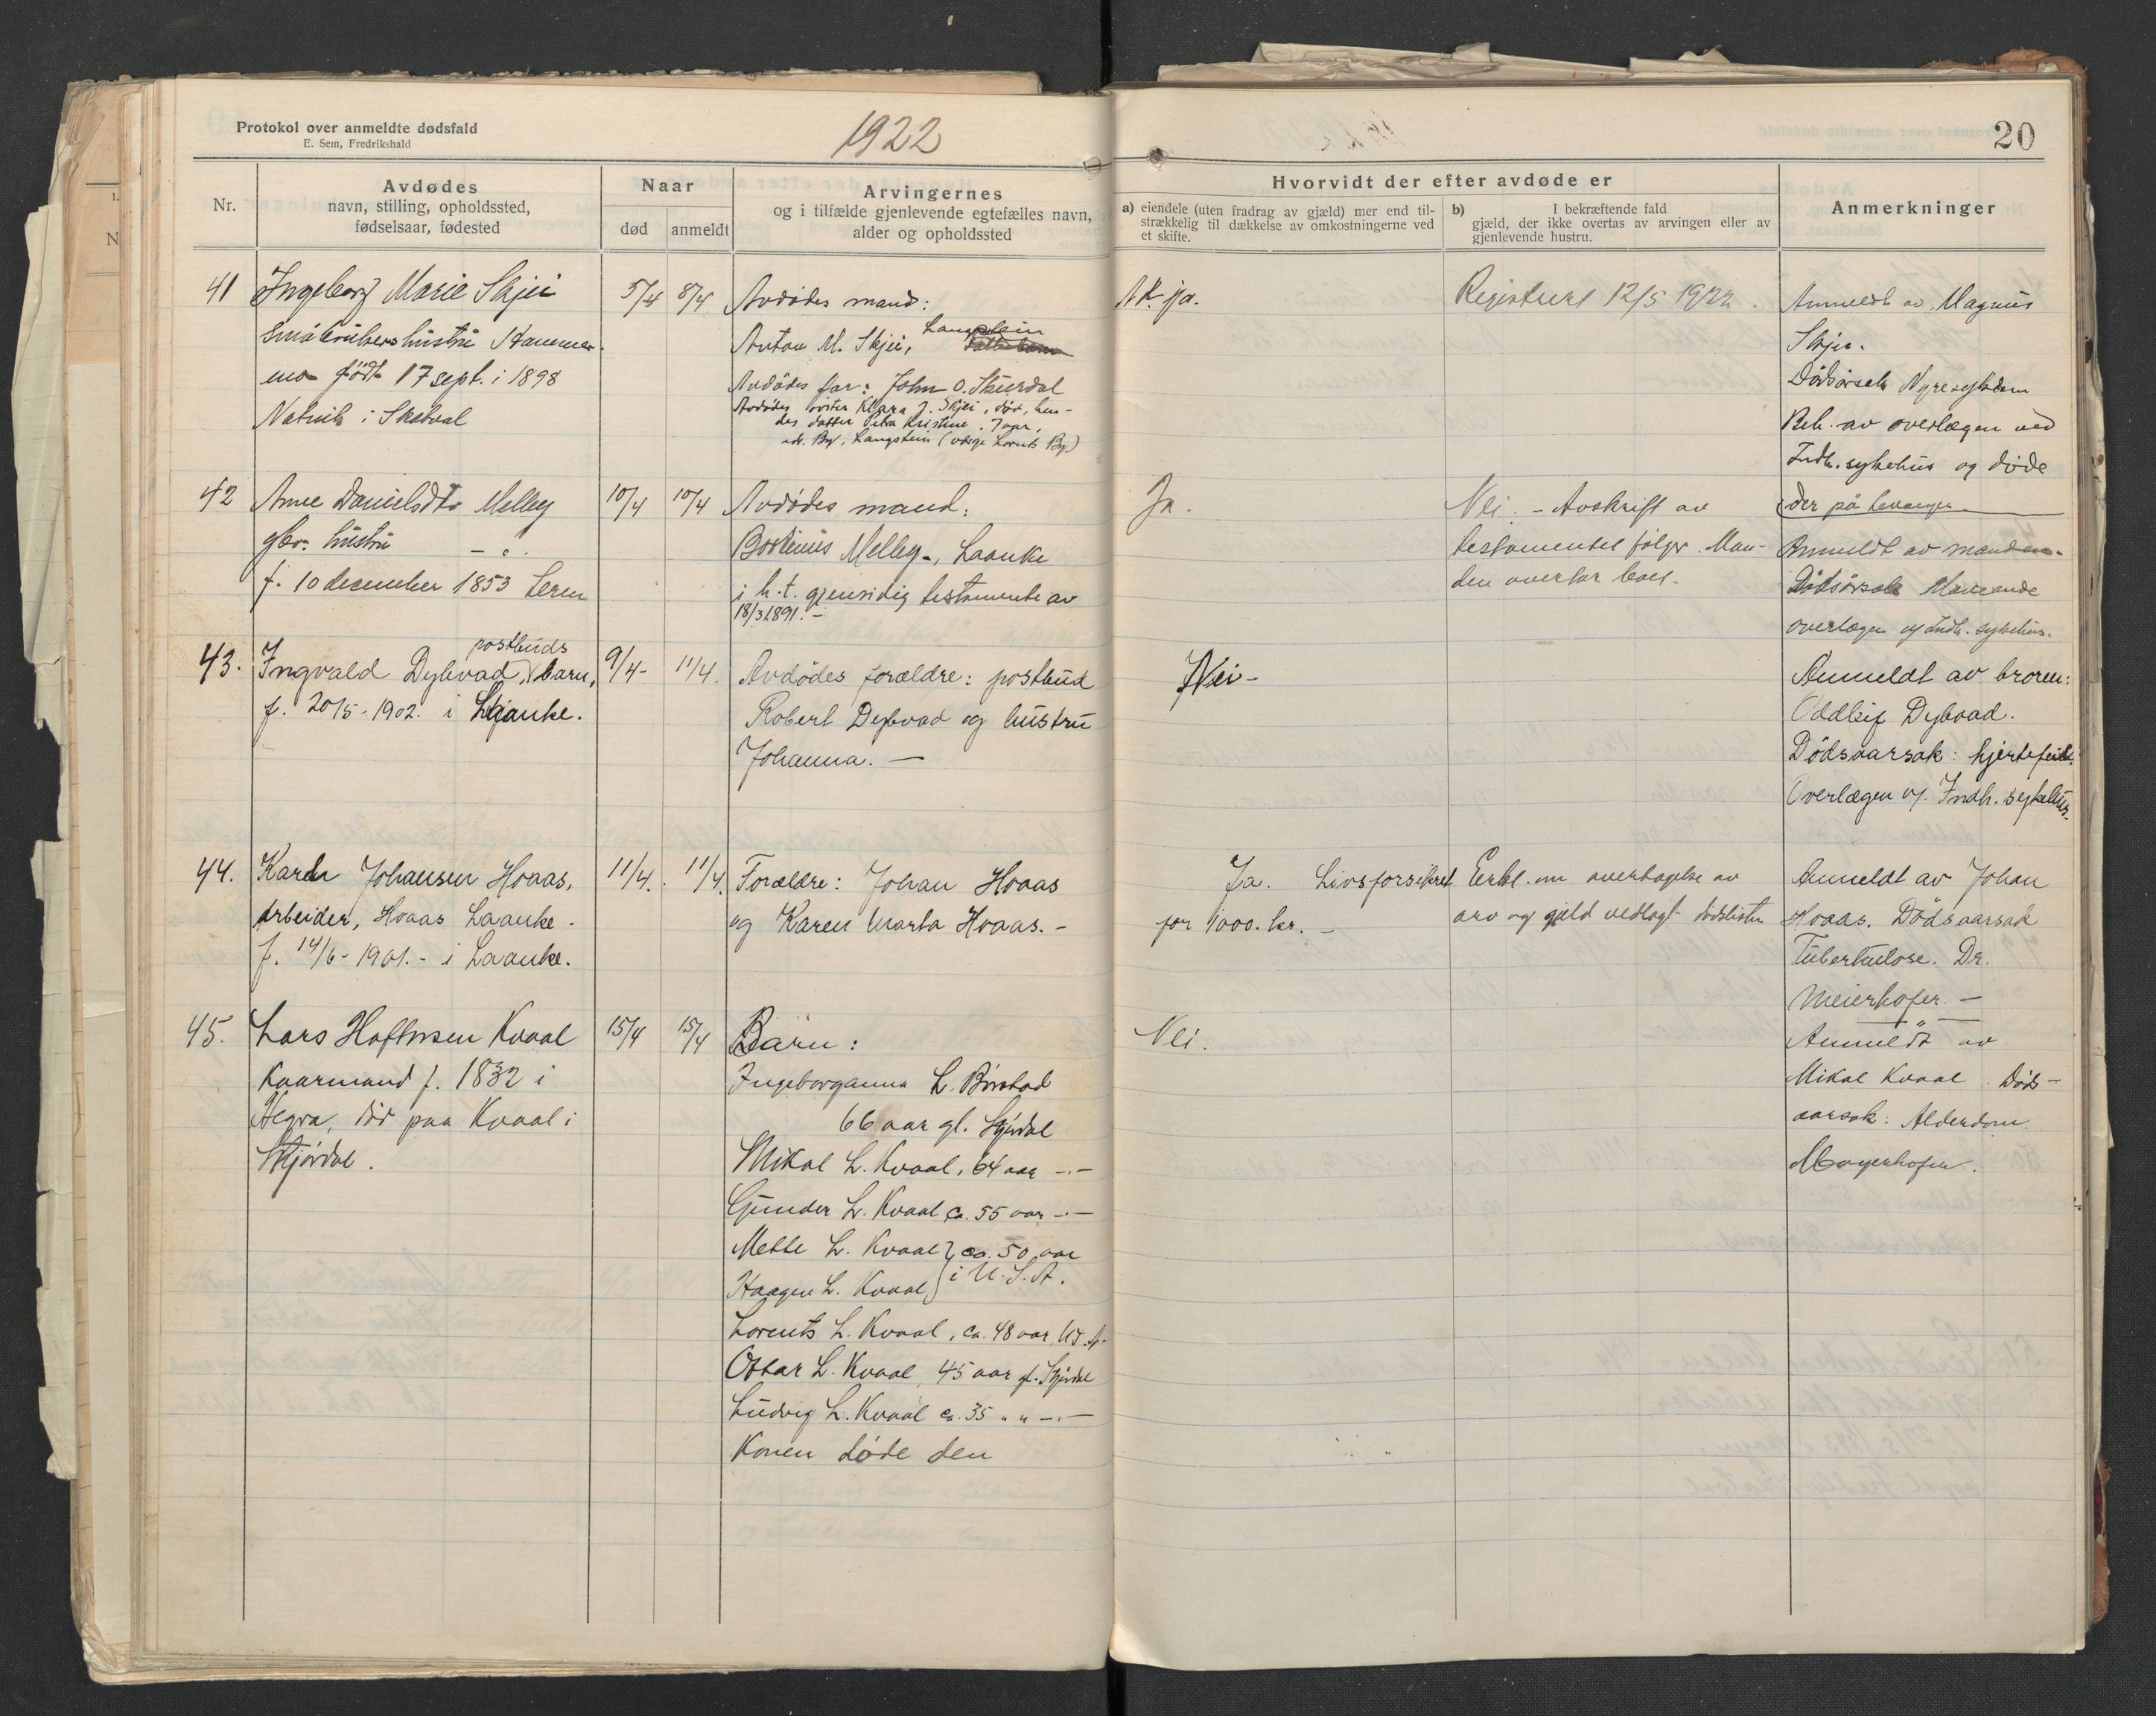 Protokol over anmeldte dødsfald
E. Sem, Fredrikshald
1922
20
Nr.
Avdødes
navn, stilling, opholdssted,
fødselsaar, fødested
Naar
død
anmeldt
Arvingernes
og i tilfælde gjenlevende egtefælles navn,
alder og opholdssted
Hvorvidt der efter avdøde er
a) eiendele (uten fradrag av gjæld) mer end til-
strækkelig til dækkelse av omkostningerne ved
et skifte.
b) I bekræftende fald
gjæld, der ikke overtas av arvingen eller av
gjenlevende hustru.
Anmerkninger
41
Ingeborg Marie Skjei
småbrukershustru
født 17 sept. i 1898
i Skatval
5/4
8/4
Avdødes mand:
Anton M. Skjei, Langstein
Avdødes far: John O. Skurdal
Avdødes søster Klara J. Skjei, død, hen-
des datter Petra Kristine, 7 aar,
adr. By, Langstein (værge Lornts By)
ja.
Registrert 12/5 1922.
Anmeldt av Magnus
Skjei.
Dødsårsak Nyresykdom
Beh. av overlægen ved
Indh. sykehus og døde
der på Levanger
42
Anne Danielsdtr Melby
gbr. hustru
f. 10 december 1853 Leren
10/4
10/4
Avdødes mand:
Melby, Laanke
i h.t. gjensidig testamente av
18/3 1891. -
Ja.
Nei. - Avskrift av
testamentet følger. Man-
den overtar boet.
Anmeldt av manden.
Dødsårsak
overlægen v/ Indh. sykehus.
43.
Ingvald Dybvad, postbuds barn,
f. 20/5-1902. i Laanke.
9/4-
11/4.
Avdødes forældre: postbud
Robert Dybvad og hustru
Johanna. -
Nei-
Anmeldt av broren:
Oddleif Dybvad.
Dødsaarsak: hjertefeil.
Overlægen v/. Indh. sykehus.
44.
Johansen Hoaas,
Arbeider, Hoaas Laanke.
f. 14/6-1901.- i Laanke.
11/4.
11/4.
Forældre: Johan Hoaas
og Karen Marta Hoaas. -
Ja. Livsforsikret
for 1000. kr. -
Erkl. om overtagelse av
arv og gjæld vedlagt dødslisten
Anmeldt av Johan
Hoaas. Dødsaarsak
Tuberkulose. Dr.
Meierhofer. -
45.
Lars Haftorsen Kvaal
Kaarmand f. 1832 i
Hegra, dør paa Kvaal i
Stjørdal.
15/4
15/4
Barn:
Ingeborganna L. Børstad
66 aar gl. Stjørdal
Mikal L. Kvaal, 64 aar -.-
Gunder L. Kvaal ca. 55 aar -.-
Mette L. Kvaal } ca. 50 aar
Haagen L. Kvaal } i U.S.A.
Lorents L. Kvaal, ca. 48 aar U.S.A.
Ottar L. Kvaal, 45 aar gl. Stjørdal
Ludvig L. Kvaal ca. 35 " " -.-
Konen døde den
Nei.
Anmeldt av
Mikal Kvaal. Døds-
aarsak: Alderdom
Mayerhofer.